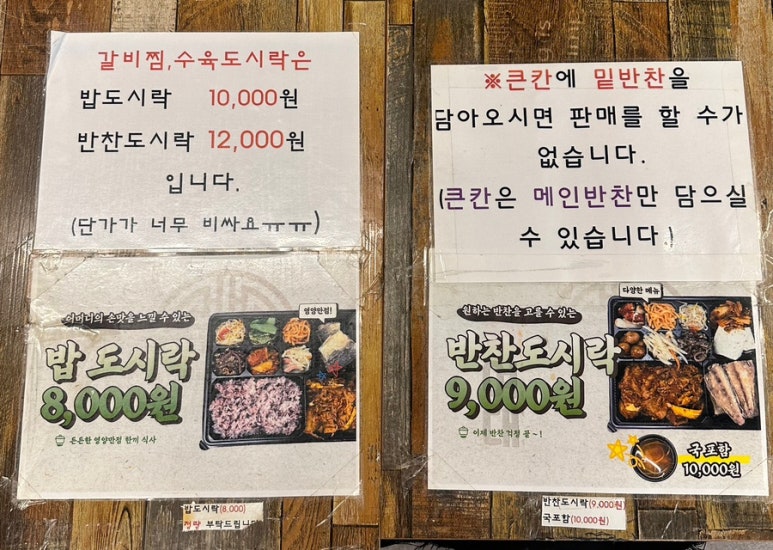 갈비찜,수육도시락은
밥도시락 10,000원
반찬도시락 12,000원
입니다.
(단가가 너무 비싸요ㅠㅠ)
어머니의 손맛을 느낄 수 있는
영양만점!
밥 도시락
8,000원
든든한 영양만점 한끼 식사
밥도시락(8,000)
정량 부탁드립니다
※큰칸에 밑반찬을
담아오시면 판매를 할 수가
없습니다.
(큰칸은 메인반찬만 담으실
수 있습니다)
다양한 메뉴
원하는 반찬을 고를 수 있는
반찬도시락
9,000원
이제 반찬 걱정 끝~!
국포함
10,000원
반찬도시락(9,000원)
국포함(10,000원)